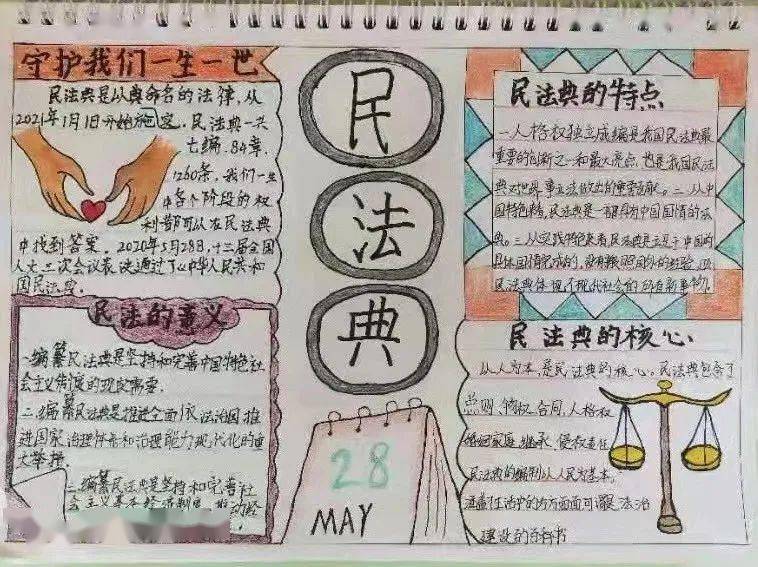 守护我们一生一世
民法典是以典命名的法律,从
2021年1月1日开始施实,民法典一共
七编.84章.
1260条,我们一生
中各个阶段的权
利都可以在民法典
中找到答案。2020年5月28日,十三届全国
人大三次会议表决通过了《中华人民共和
国民法典
民法的意义
一.编纂民法典是坚持和完善中国特色社
会主义制度的现实需要.
二.编纂民法典是推进全面依法治国推
进国家治理体系和治理能力现代化的重
大举措.
三.编纂民法典是坚持和完善社
会主义基本经济制度,推动经
民
法
典
28
MAY
民法典的特点
一.人格权独立成编是我国民法典最
重要的创新之一和最大亮点,也是我国民法
典对世界 做出的重要贡献。二.从中
国特色看,民法典是一部具有中国国情的法
典。三.从实践特色来看民法典是立足于中国的
具体国情完成的,没有照搬国外的经验.四.
民法典体现了现代社会的所有新事物.
民法典的核心
以人为本,是民法典的核心。民法典包含了
总则、物权、合同、人格权
婚姻家庭、继承、侵权责任
民法典的编制以人民为基本,
涵盖生活中的方方面面可谓是法治
建设的百科书